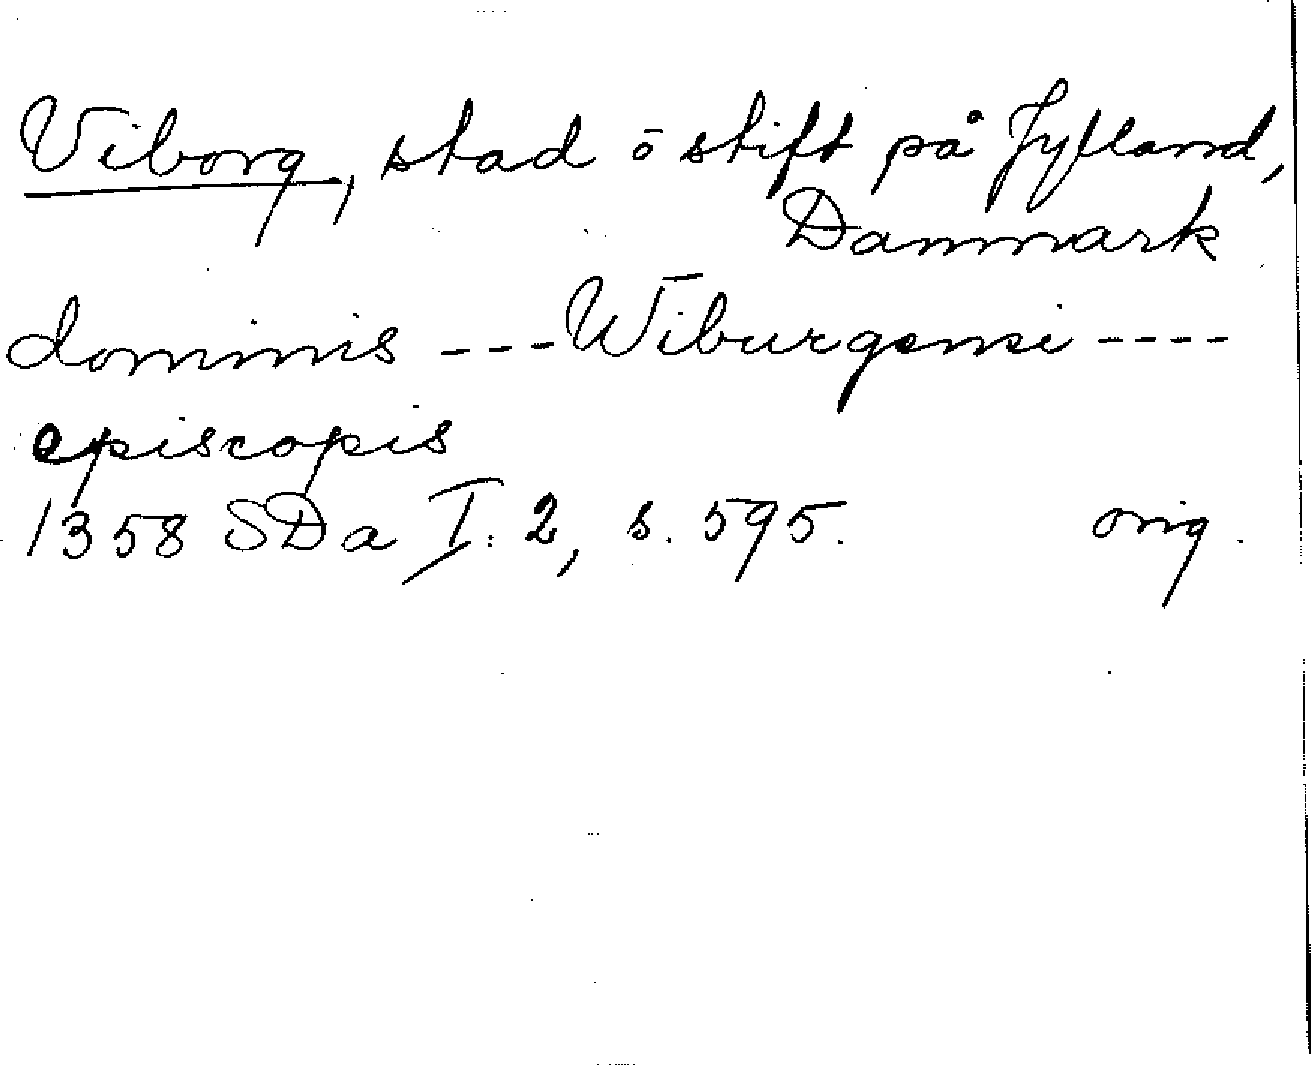 Viborg, stad o stift på Jylland,
Danmark
dominis --- Wiburgensi ----
episcopis
1358 SDa I: 2, s. 595. orig.